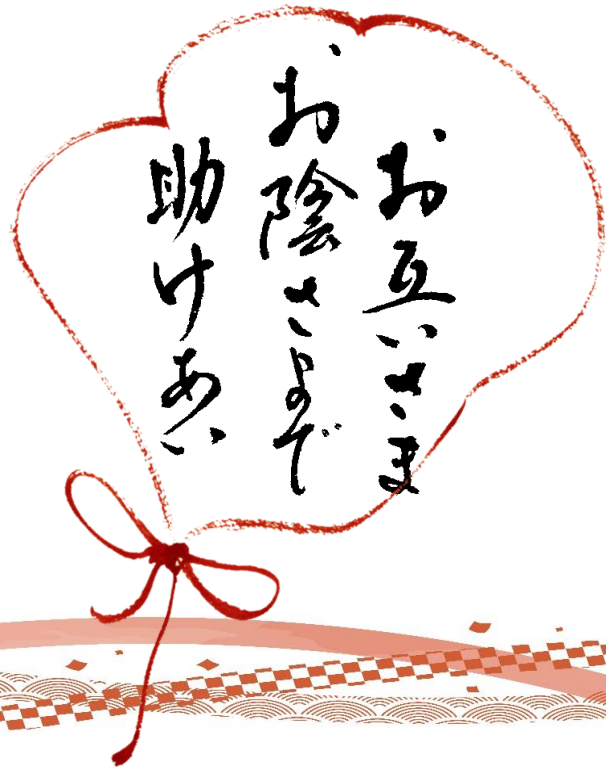 お互いさま
お陰さまで
助けあい